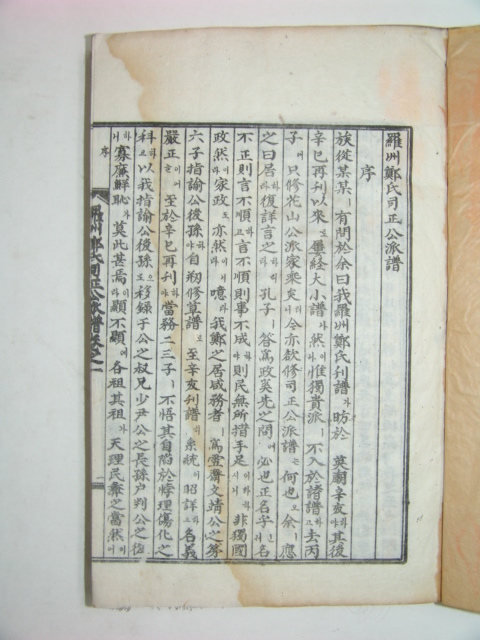 羅州鄭氏司正公派譜
序
族從某某ㅣ有問於余曰我羅州鄭氏刊譜ㅣ昉於 英廟辛亥하야其後
辛巳再刊以來로屢經大小譜나然이나惟獨貴派ㅣ不入於諸譜하고去丙
子에只修花山公派家乘矣러니今亦欲修司正公派譜는何也오余ㅣ應
之曰居하라復詳言之하리라孔子ㅣ答爲政奚先之問에必也正名乎신뎌名
不正則言不順하고言不順則事不成하야則民無所措手足이라하시니非獨國
政然이라家政도亦然이라噫라我鄭之居咸務者ㅣ爲雪齋文靖公之第
六子指諭公後孫야自刱修草譜로至辛亥刊譜히系統이昭詳하고名義
嚴正이러니至於辛巳再刊하야當務二三子ㅣ不悟其自陷於悖理傷化之
科하고以我指諭公後孫으로移錄于公之叔兄少尹公之長孫戶判公之後
하니寡廉鮮恥가莫此甚焉이라顧不顯에各祖其祖가天理民彝之當然이어
羅州鄭氏司正公派譜卷之一
序
一